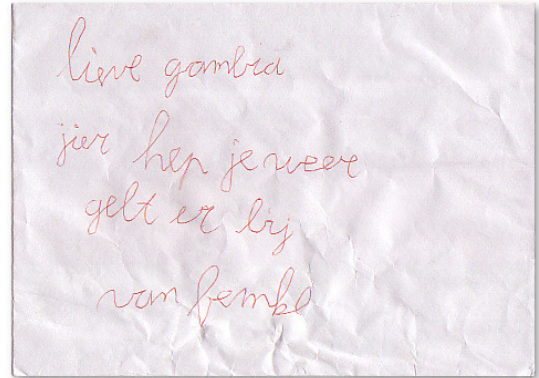 lieve gambia
jier hep je weer
gelt er bij
van femke